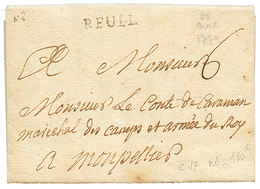 REUIL
Monsieur
Monsieur Le Conte de Caraman
maréchal des camps et armée du Roy
a monpellier